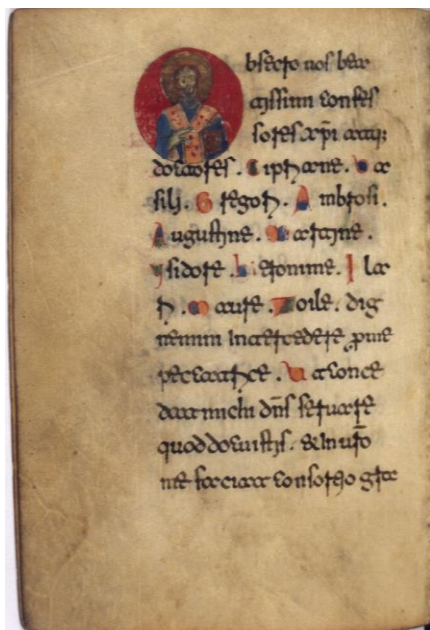 Obsecro uos bea
tissimi confes
sores xp̄i atq;
doctores. Ba
silii. Gregori. Ambrosi.
Augustine. Martine.
ysidore. Hieronime. Ila
ri. Maure. Zoile. dig
nemini intercedere ꝓ me
peccatrice. Ut conce
dat michi dn̄s seruare
quod docuistis. & in ur̄o
me faciat consortio gra